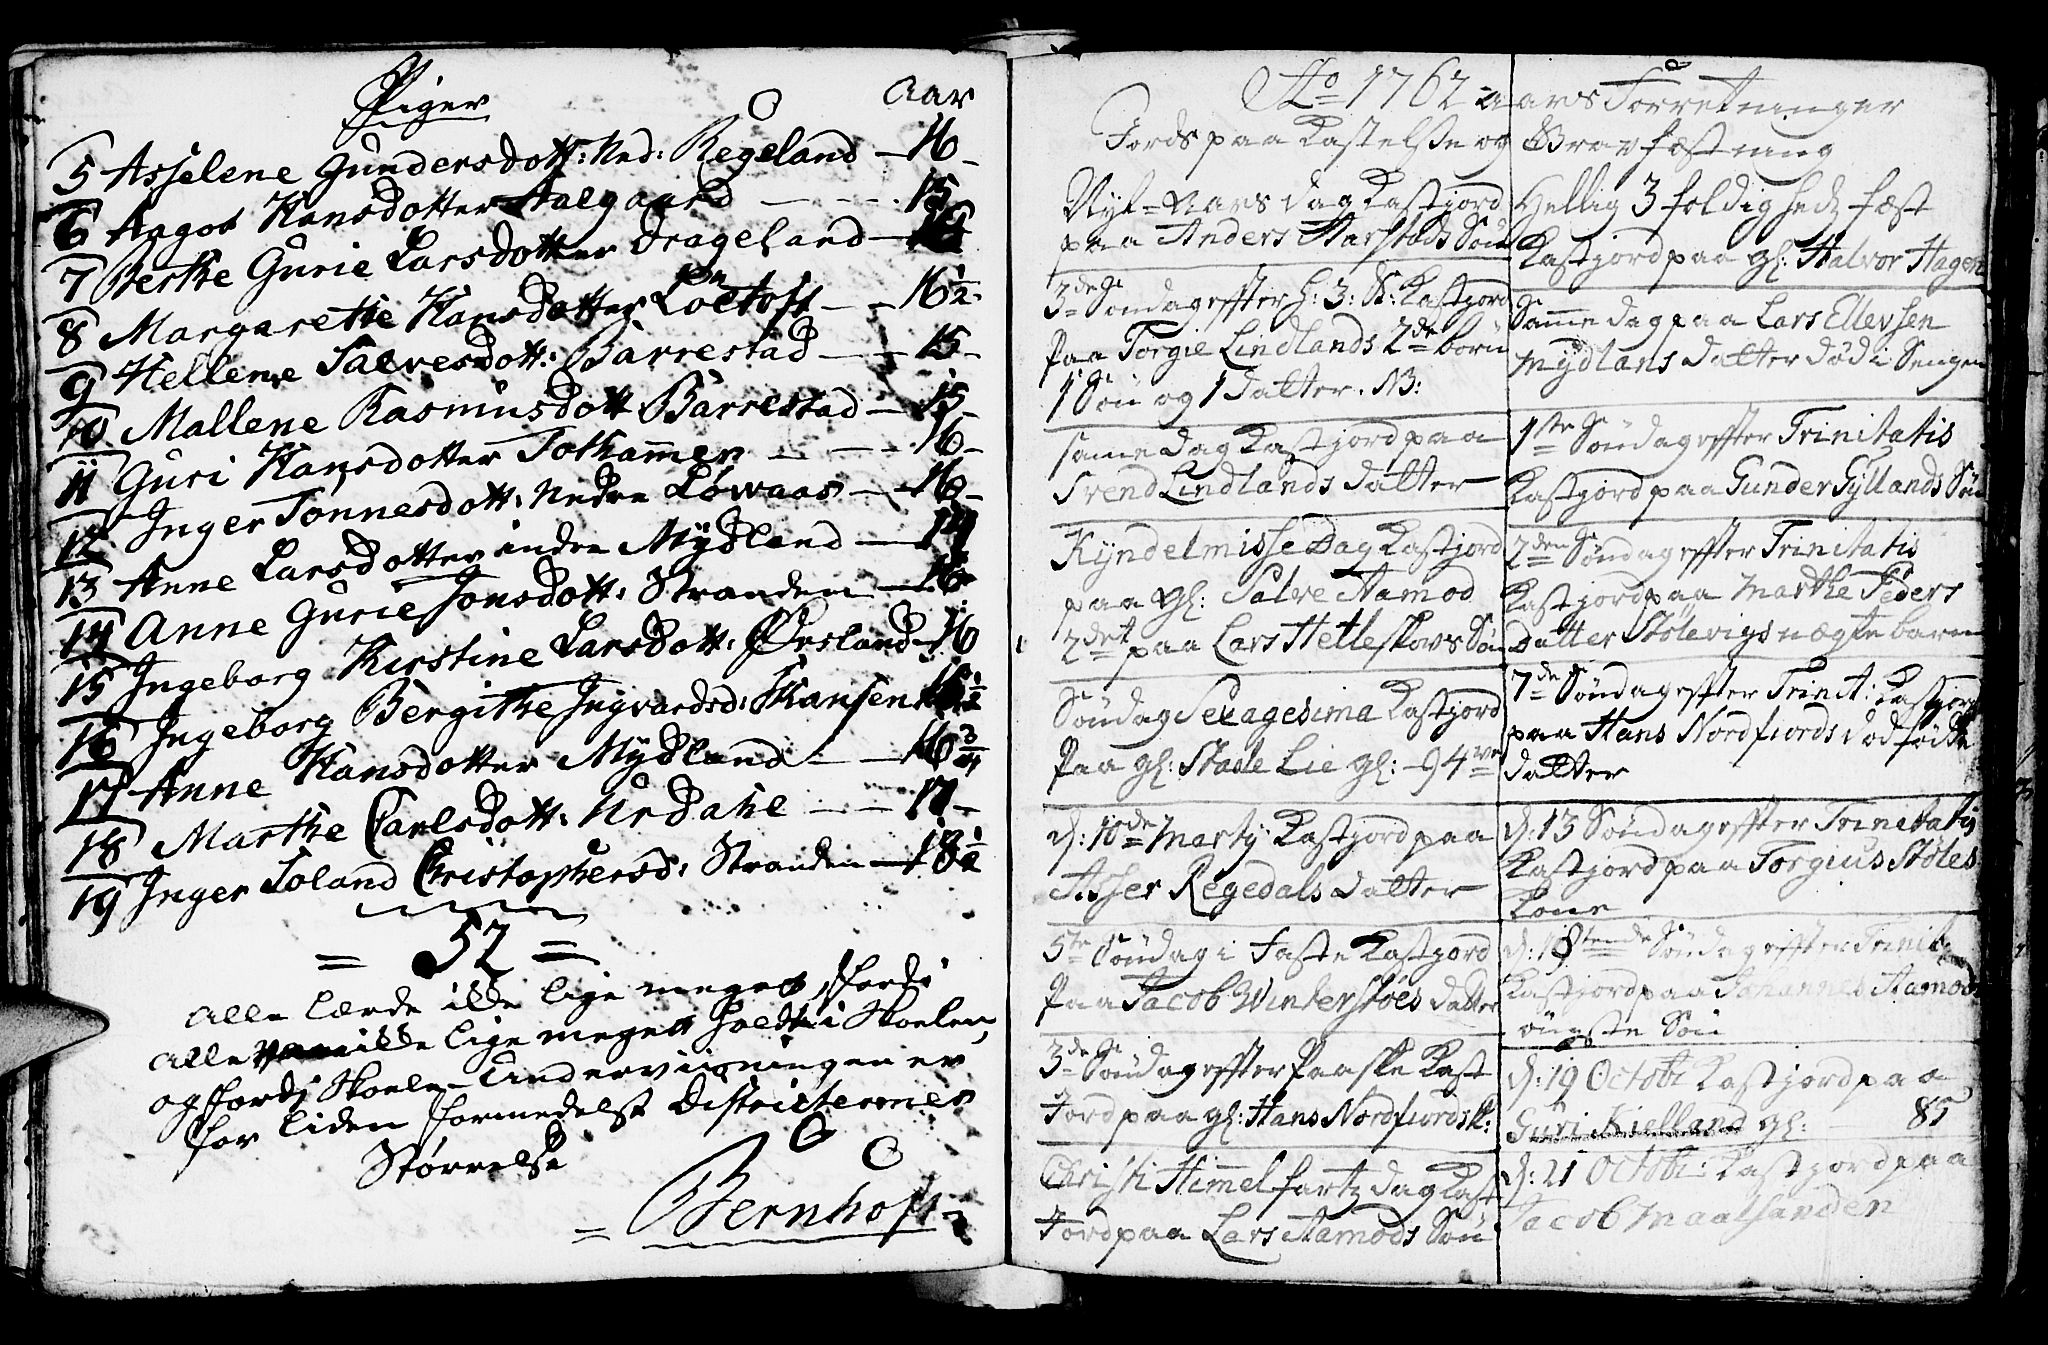 Piger Aar
5 Asselene Gundersdott: Ned: Regeland — 16 -
6 Aagot Hansdotter Aalgaard — 15
7 Berthe Gurie Larsdotter Drageland —
8 Margarethe Hansdotter Loctoft — 16 1/2 -
9 Hellene Salvesdott: Barrestad — 15 -
10 Mallene Rasmusdott Barrestad — 15 -
11 Guri Hansdotter Tothammer — 16 -
12 Inger Tønnesdott: Nedre Løwaas — 16 -
13 Anne Larsdotter indre Mydland — 14
14 Anne Gurie Jonsdott: Stranden — 16
15 Ingeborg Kirstine Larsdott: Ørsland — 16
16 Ingeborg Bergithe Ingvardsd: Hansen
17 Anne Hansdotter Mydland — 16 3/4
18 Marthe Carlsdott: Urdahl — 17 -
19 Inger Soland Christophersd: Stranden — 18 1/2
= 52 =
Alle lærde ikke lige meget, fordi
alle ikke lige meget holdt i Skoelen,
og fordi Skole-Underviisningen er
for liden formedelst Districternes
Størrelse
= Bernhoft
Ao 1762 aars Forretninger
Jords paa Kastelse og Gravfæstning
Nyt-Aars dag Kastjord
paa Anders Harstads Søn
3de Søndag effter H: 3: K: Kastjord
paa Torgie Lindlands 2de børn
1 Søn og 1 datter. NB:
same dag Kastjord paa
Svend Lindlands datter
Kyndelmisse Dag Kastjord
paa gl: Salve Aamod
2det paa Lars Helleskovs Søn
Søndag Sexagesima Kastjord
paa gl: Lie gl: 94
d: 10de Marty Kastjord paa
Asser Regedals datter
5te Søndag i Faste Kastjord
paa Jacob Winterstøes datter
3de Søndag effter Paaske Kast
Jord paa gl: Hans Nordfiords K:
Christi Himmelfartz dag Kast
Jord paa Lars Aamods Søn
Hellig 3foldigheds fæst
Kastjord paa gl: Halvor Hagen
Samme dag paa Lars Ellevsen
Mydlans datter død i Sengen
1ste Søndag effter Trinitatis
Kastjord paa Gunder Gyllands Søn
2den Søndag effter Trinitatis
Kastjord paa Marthe Peders
Datter Stølevigs uægte barn
7de Søndag effter Trinit: Kastjord
paa Hans Nordfiords dødfødte
datter
d: 13 Søndag effter Trinitatis
Kastjord paa Torgius Støles
Kone
d: 18tende Søndag effter Trinit:
Kastjord paa Johannes Aamods
yngste Søn
d: 19 Octobr Kastjord paa
Guri Kielland gl: 85
d: 21 Octobr: Kastjord paa
Jacob Maalsanden